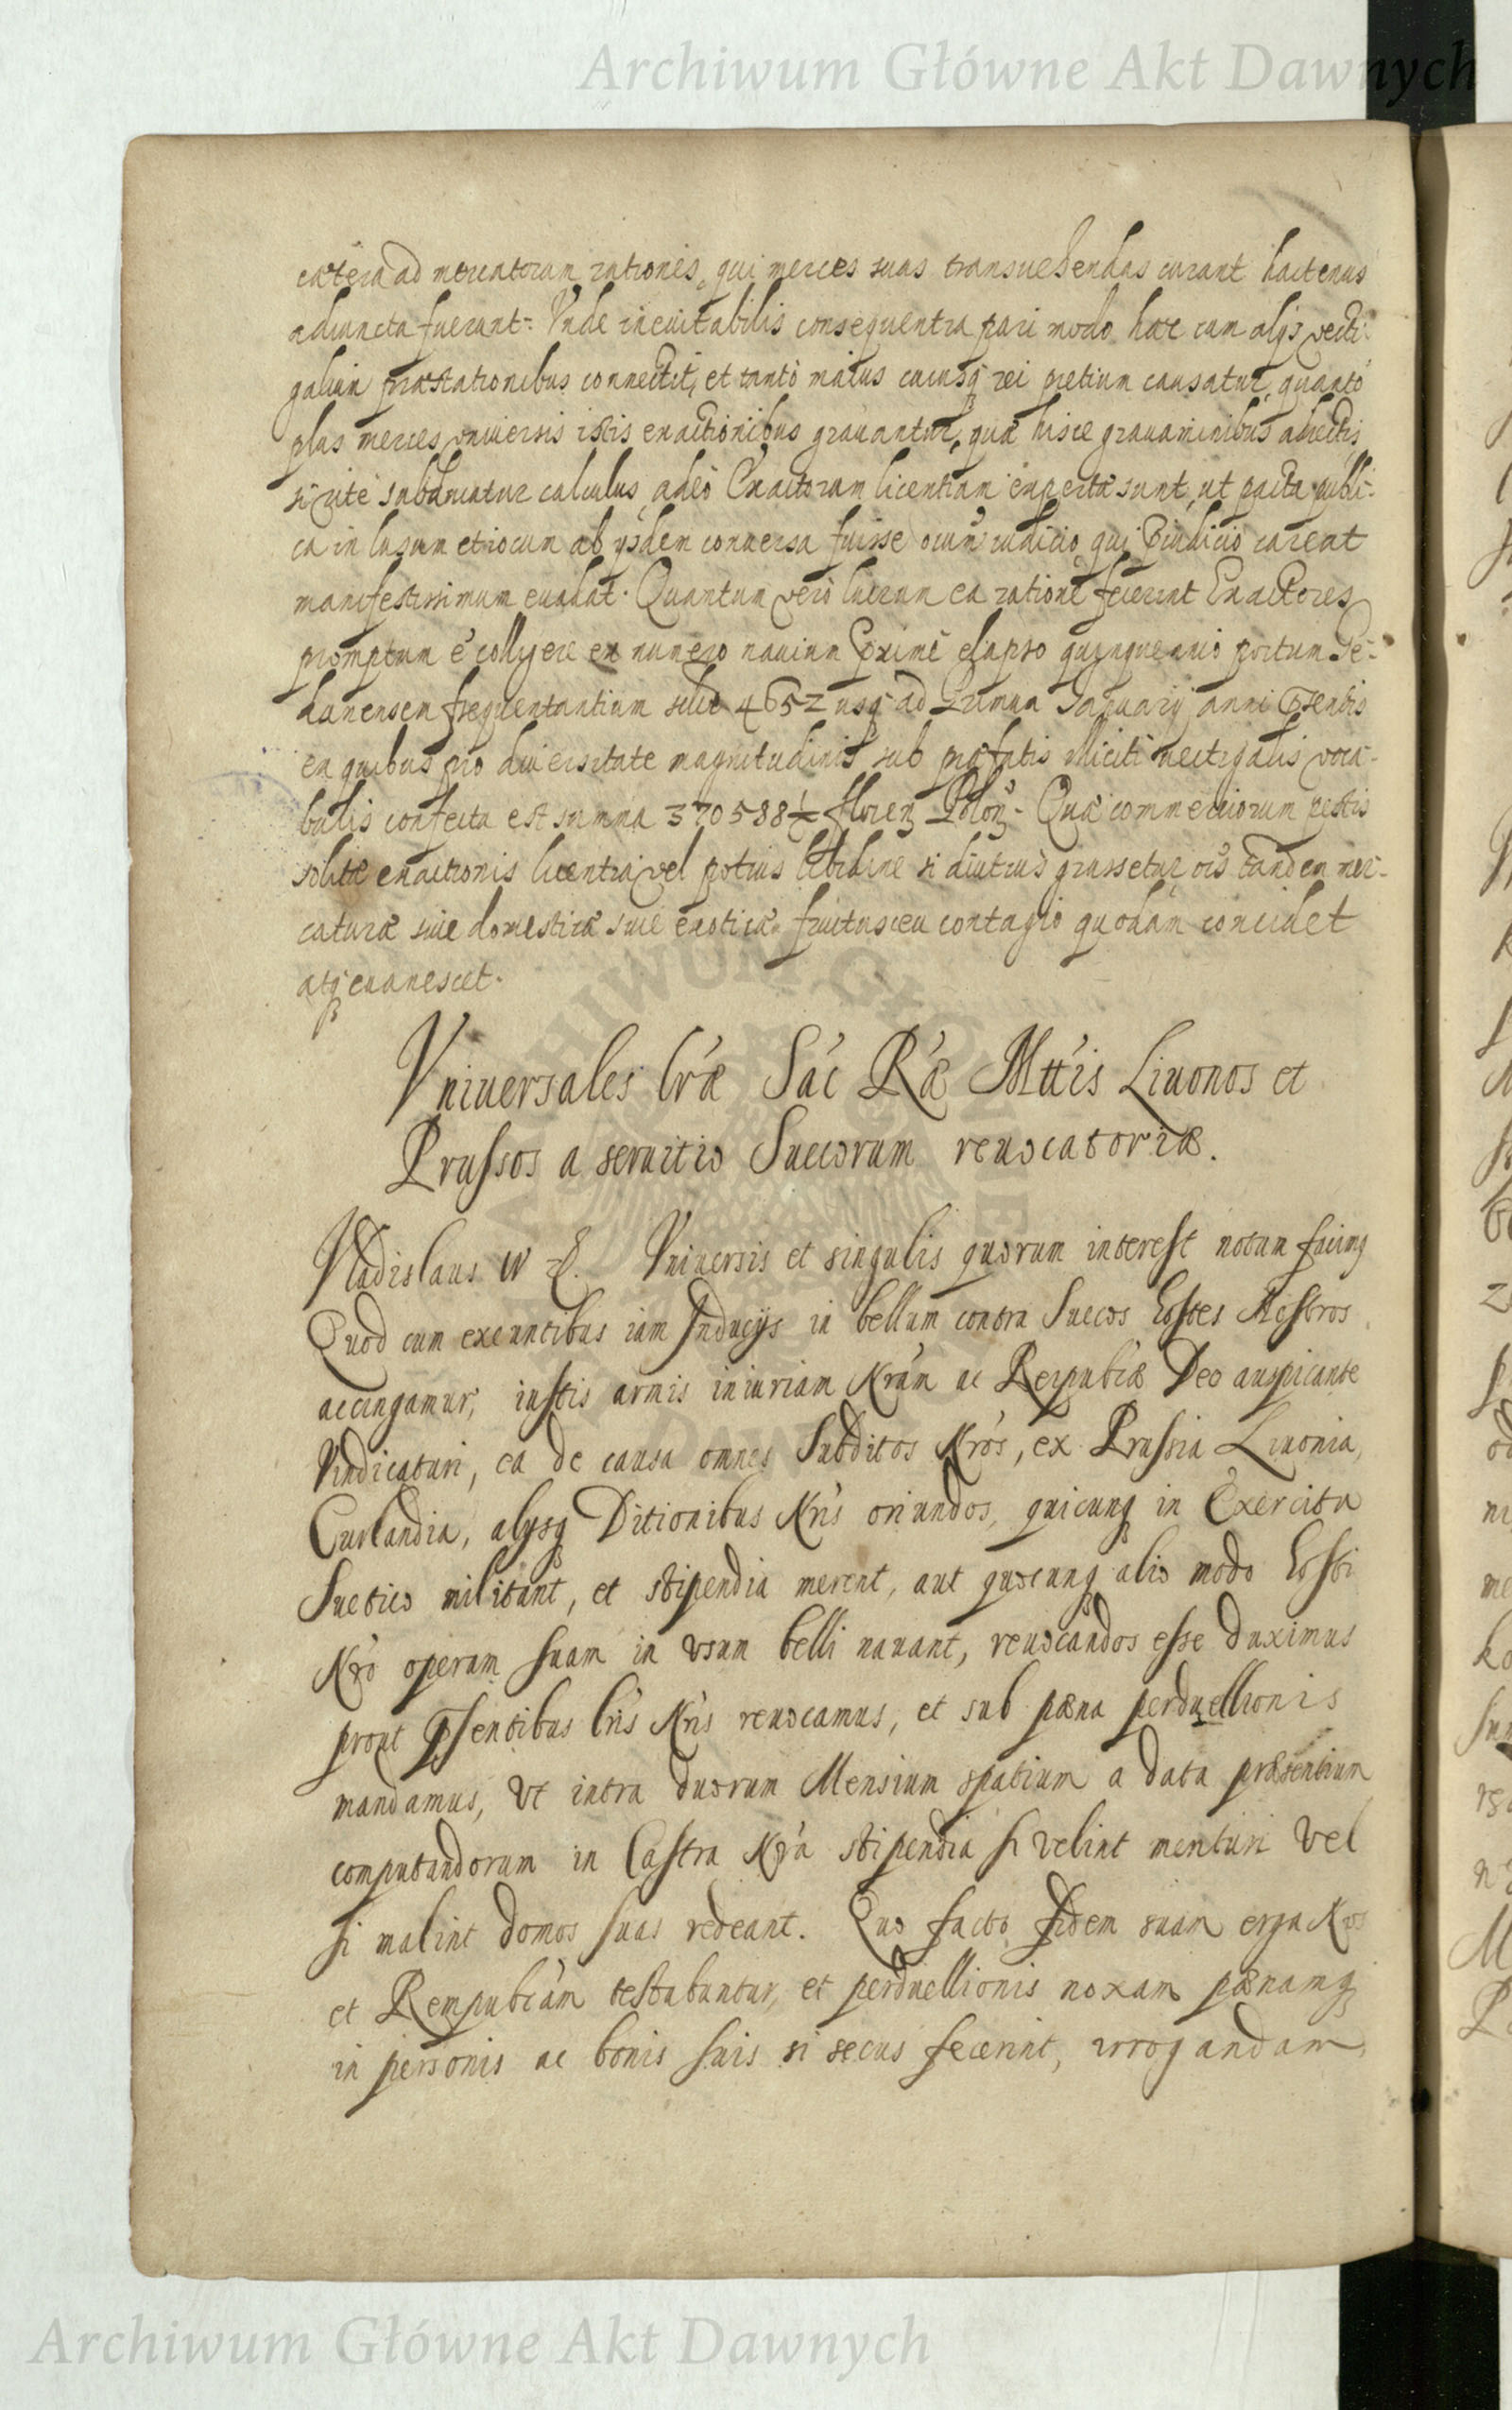 Archiwum Główne Akt Dawnych
cætera ad mercatorum rationes, qui merces suas transuehendas curant hactenus
adiuncta fuerunt: Vnde ineuitabilis consequentia pari modo hæc cum alijs vecti-
galium præstationibus connectit, et tantò maius cuiusq rei pretium causatur, quantò
plus merces vniuersis istis exactionibus grauantur, quæ hisce grauaminibus
si rite subducatur calculus, adeò Exactorum licentiam expertæ sunt, ut pacta publi-
ca in lusum et iocum ab ijsdem conuersa fuisse iudicio, qui careat
manifestissimum euadat. Quantum verò lucrum ea ratione fecerint Exactores
promptum ē colligere ex numero nauium elapso quinquennio portum Ge-
danensem frequentantium 4652 usq ad Januarij anni
ex quibus pro diuersitate magnitudinis sub præfatis illiciti uectigalis voca-
bulis confecta est summa 370588½ floren Polon. Quæ commerciorum pestis
solitæ exactionis licentia vel potius libidine si diutius grassetur, ois tandem mer-
caturæ siue domesticæ siue exoticæ fructus ceu contagio quodam concidet
atq euanescet.
Vniuersales lræ Sac Ræ Mttis Liuonos et
Prussos a seruitio Suecorum reuocatoriæ.
Vladislaus IV Vniuersis et singulis quorum interest notum facimq
Quod cum exeuntibus iam Inducijs in bellum contra Suecos hostes Nostros
accingamur, iustis armis iniuriam Nram ac Reipublicæ Deo auspicante
Vindicaturi, ea de causa omnes Subditos Nros, ex Prussia Liuonia,
Curlandia, alysq Ditionibus Nris oriundos, quicunq in Exercitu
Suetico militant, et stipendia merent, aut quocunq alio modo hosti
Nro operam suam in vsum belli nauant, reuocandos esse duximus
prout psentibus lris Nris reuocamus, et sub pæna perduellionis
mandamus, Vt intra duorum Mensium spatium a data præsentium
computandorum in Castra Nra stipendia si velint merituri Vel
si malint domos suas redeant. Quo facto fidem suam erga Nos
et Rempublicam testabuntur, et perduellionis noxam pænamq
in personis ac bonis suis si secus fecerint, irrogandam,
Archiwum Główne Akt Dawnych